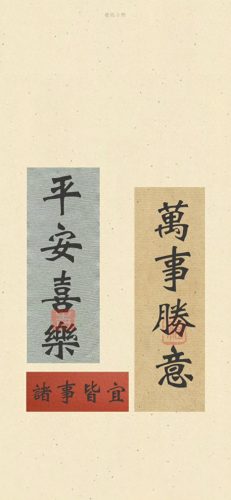 平安喜樂
萬事勝意
諸事皆宜